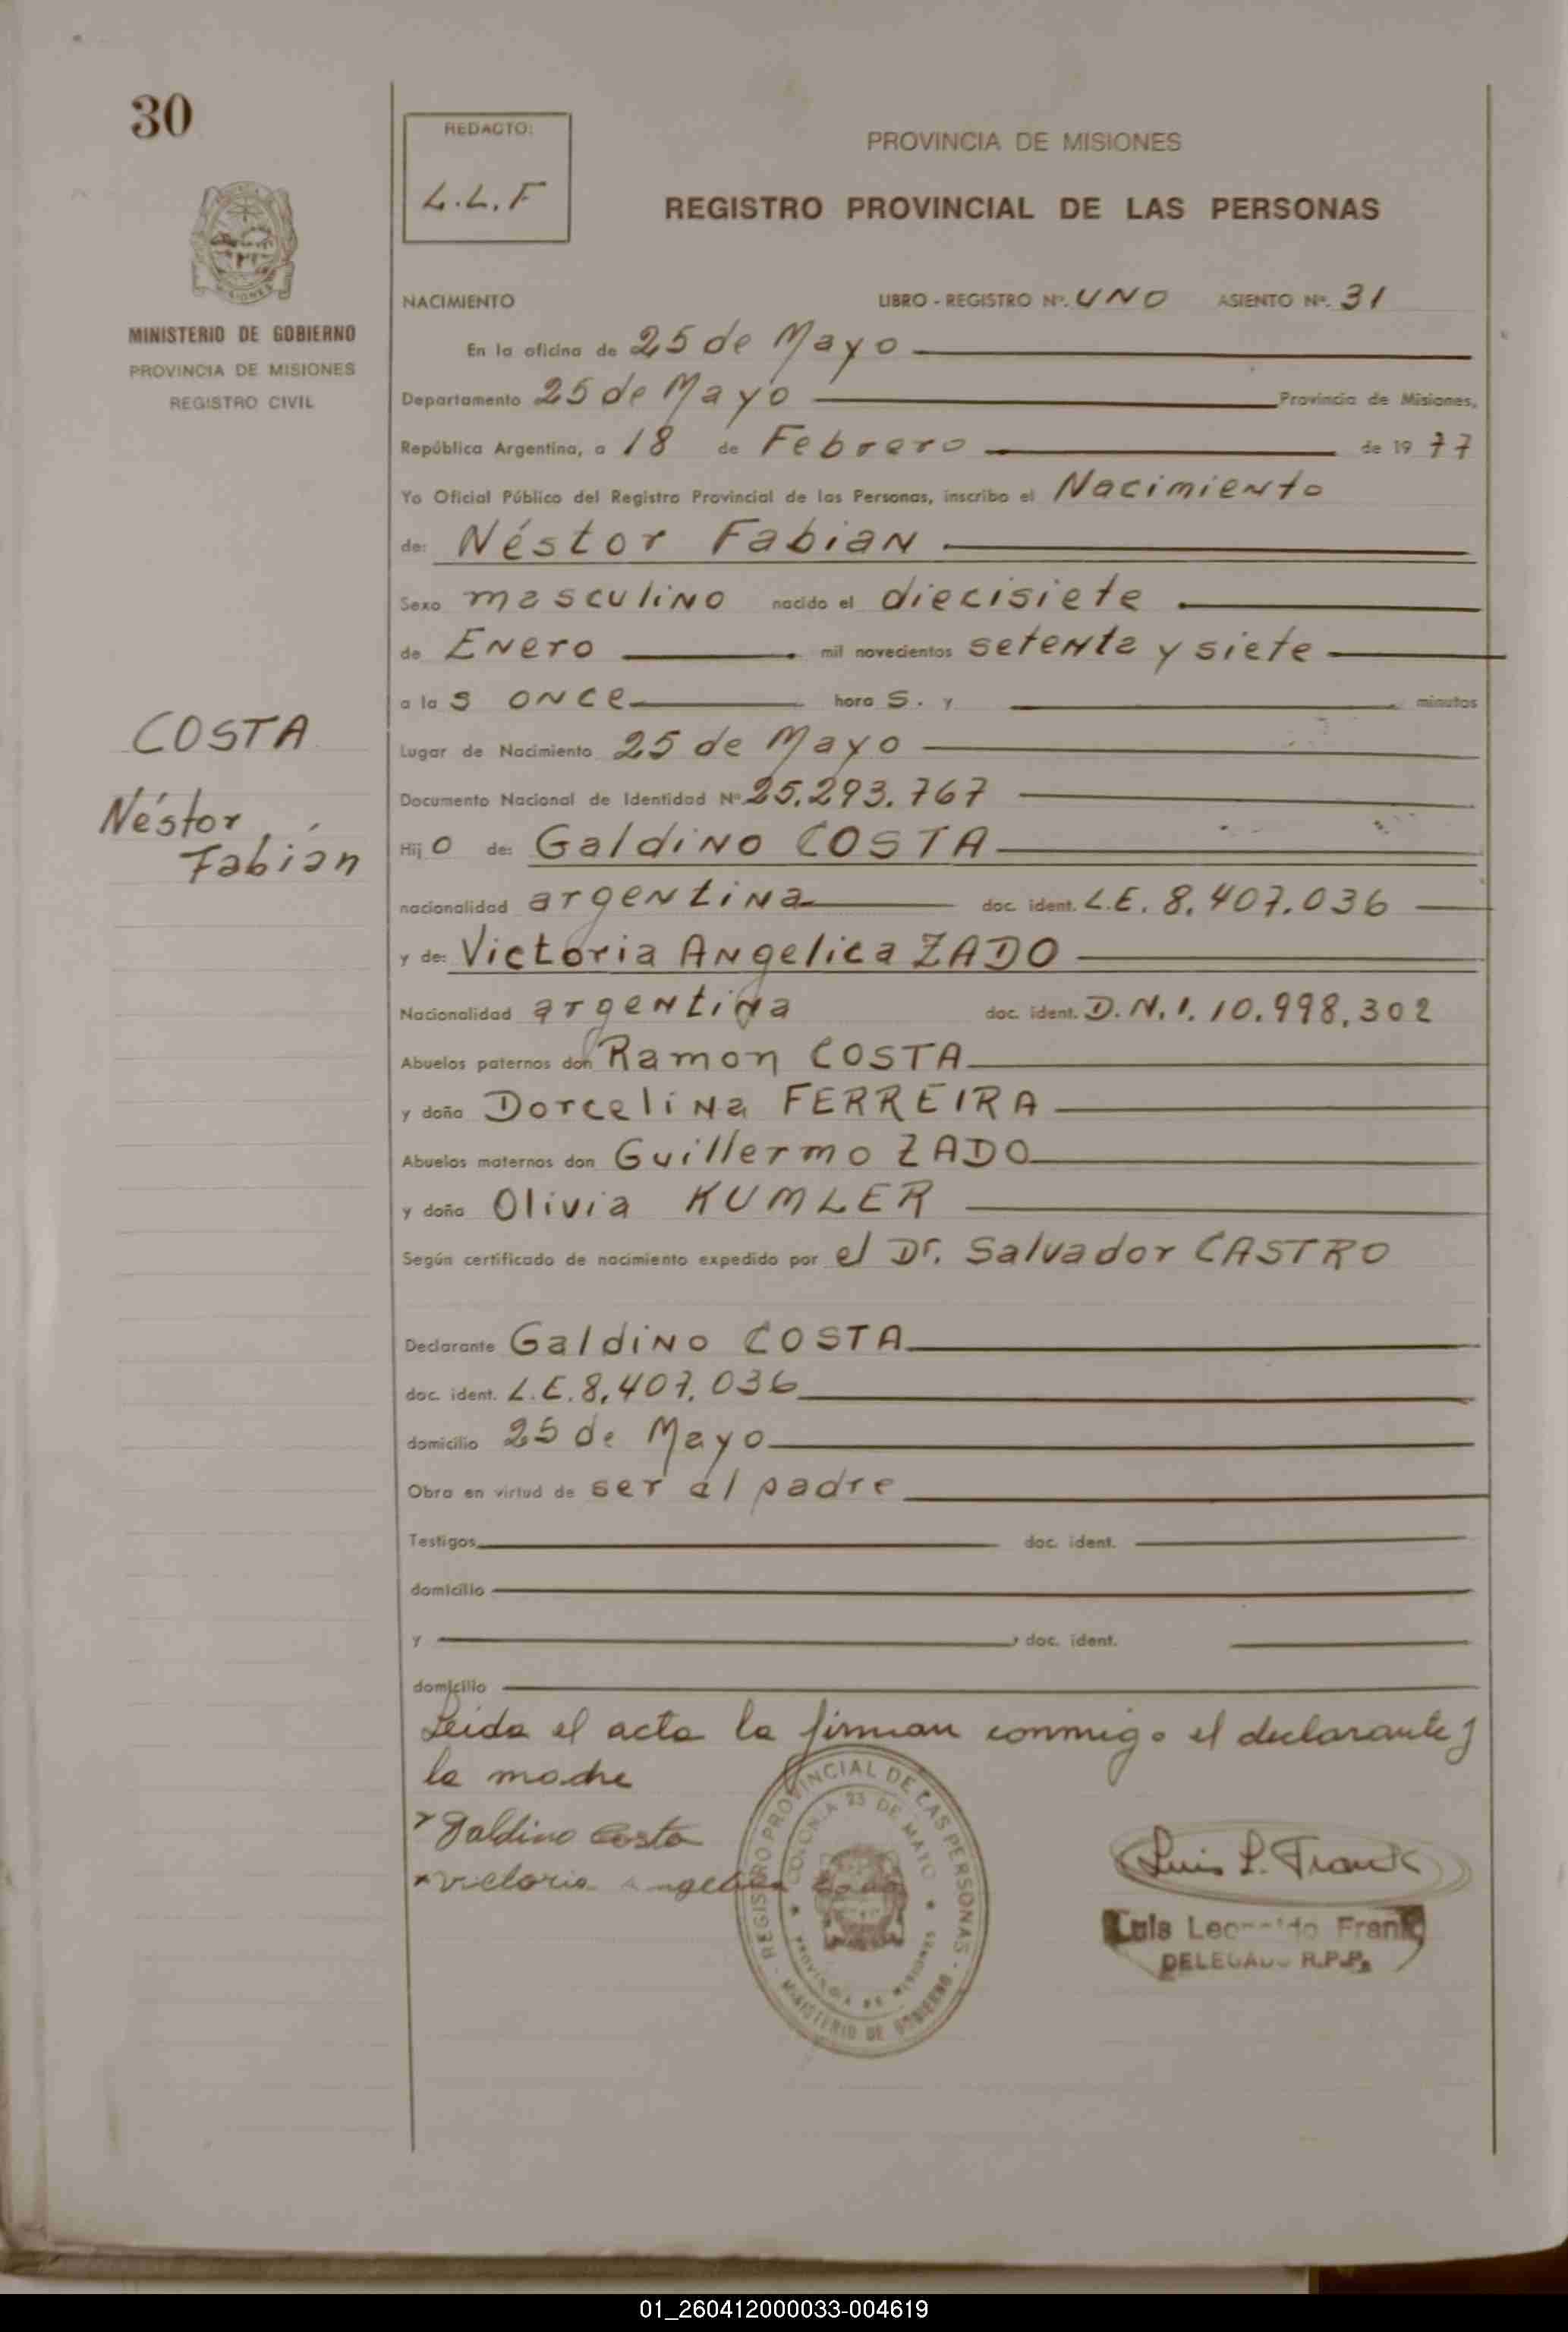 30
REDACTO:
L.L.F
PROVINCIA DE MISIONES
REGISTRO PROVINCIAL DE LAS PERSONAS
MISIONES
MINISTERIO DE GOBIERNO
PROVINCIA DE MISIONES
REGISTRO CIVIL
NACIMIENTO LIBRO - REGISTRO Nº. UNO ASIENTO Nº. 31
En la oficina de 25 de Mayo
Departamento 25 de Mayo Provincia de Misiones,
República Argentina, a 18 de Febrero de 1977
Yo Oficial Público del Registro Provincial de las Personas, inscribo el Nacimiento
de: Néstor Fabian
Sexo masculino nacido el diecisiete
de Enero mil novecientos setenta y siete
a las once horas. y minutos
COSTA
Néstor
Fabián
Lugar de Nacimiento 25 de Mayo
Documento Nacional de Identidad Nº 25.293.767
Hijo de: Galdino COSTA
nacionalidad argentina doc. ident. L.E. 8.407.036
y de: Victoria Angelica ZADO
Nacionalidad argentina doc. ident. D.N.I. 10.998.302
Abuelos paternos don Ramon COSTA
y doña Dorcelina FERREIRA
Abuelos maternos don Guillermo ZADO
y doña Olivia KUMLER
Según certificado de nacimiento expedido por el Dr. Salvador CASTRO
Declarante Galdino COSTA
doc. ident. L.E. 8.407.036
domicilio 25 de Mayo
Obra en virtud de ser el padre
Testigos doc. ident.
domicilio
y , doc. ident.
domicilio
Leida el acta la firman conmigo el declarante y
la madre
Galdino Costa
Victoria Angelica
REGISTRO PROVINCIAL DE LAS PERSONAS - MINISTERIO DE GOBIERNO -
COLONIA 25 DE MAYO
PROVINCIA DE MISIONES
Luis L. Frank
Luis Leopoldo Frank
DELEGADO R.P.P.
01_260412000033-004619